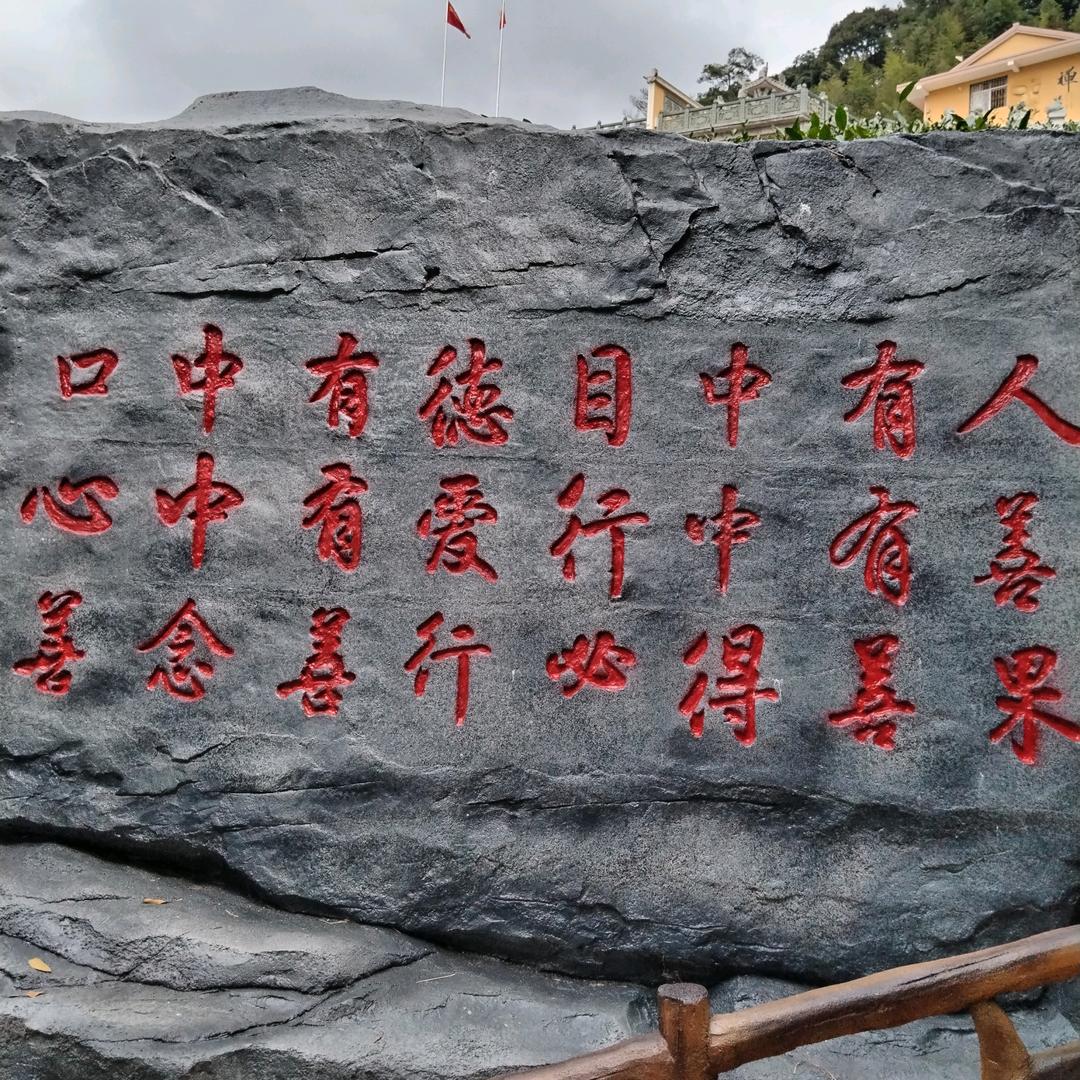 禅
口中有德目中有人
心中有爱行中有善
善念善行必得善果